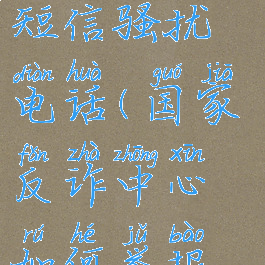 短信骚扰
diàn huà guó jiā
电话(国家
fǎn zhà zhōng xīn
反诈中心
rú hé jǔ bào
如何举报